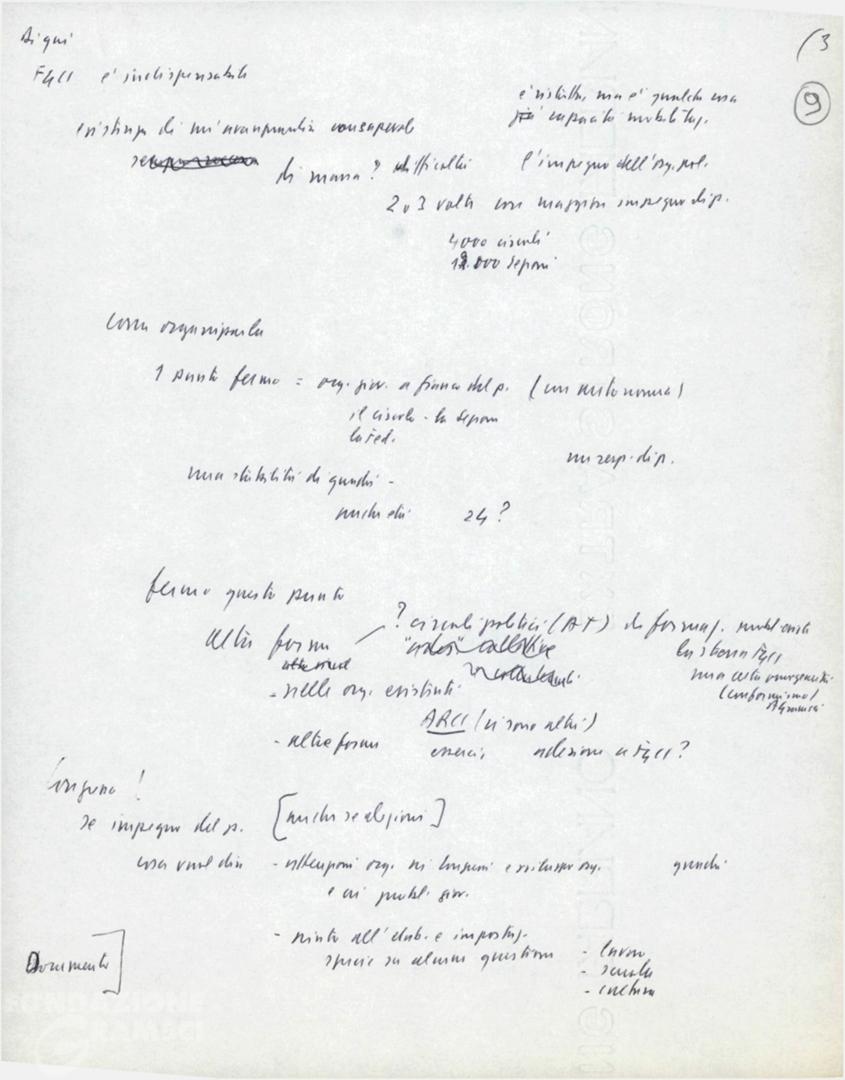 Di qui
/3
9
FGCI è indispensabile
è ristretta, ma è qualche cosa
più capacità mobilitaz.
esistenza di un'avanguardia consapevole
di massa? difficoltà
l'impegno dell'org. pol.
2 o 3 volte con maggior impegno di p.
4000 circoli
12.000 sezioni
Come organizzarla
1 punto fermo = org. giov. a fianco del p. (con autonomia)
il circolo - la sezione
la fed.
un resp. di p.
una stabilità di quadri -
anche età 24?
fermo questo punto
altre forme
? circoli politici (A+) di formaz.
la storia FGCI
una certa
(conformismo)
Gramsci
- nelle org. esistenti
ARCI (ci sono altri)
- altre forme
adesione a FGCI?
Congresso!
se impegno del p. [anche se elezioni]
cosa vuol dire
- attenzioni org. nei congressi e sviluppo org. quadri
e ai probl. giov.
- aiuto all'elab. e impostaz.
specie su alcune questioni
- lavoro
- scuola
- cultura
Documento]
FONDAZIONE
GRAMSCI